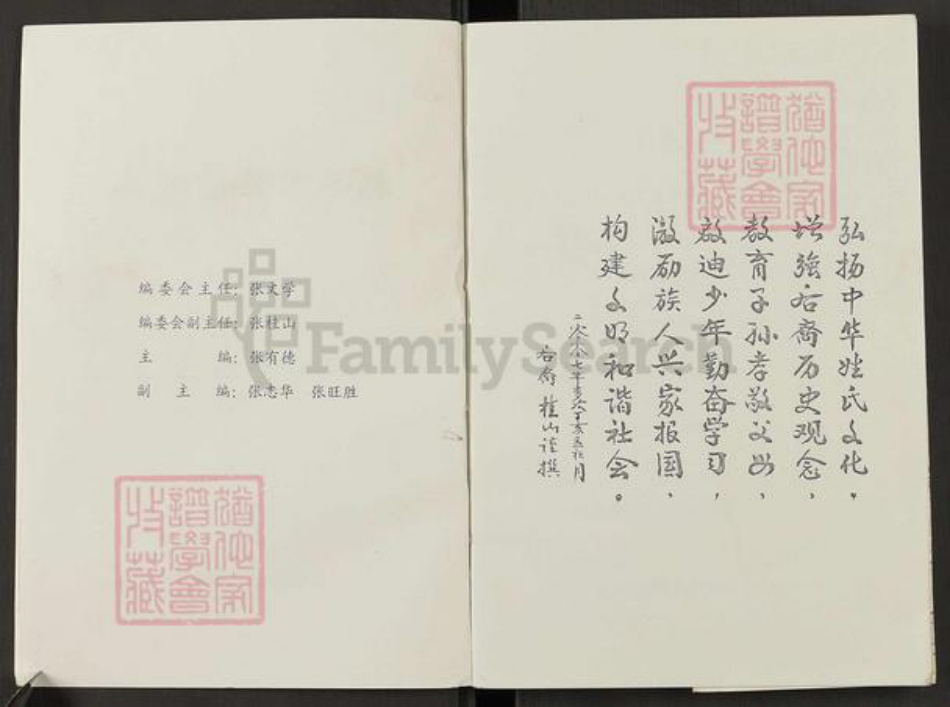 编委会主任：张文学
编委会副主任：张桂山
主编：张有德
副主编：张志华 张旺胜
猶他家
譜學會
收藏
猶他家
譜學會
收藏
弘扬中华姓氏文化。
增强后裔历史观念，
教育子孙孝敬父母、
启迪少年勤奋学习，
激励族人兴家报国、
构建文明和谐社会。
二零零七年
后裔 桂山谨撰
FamilySearch